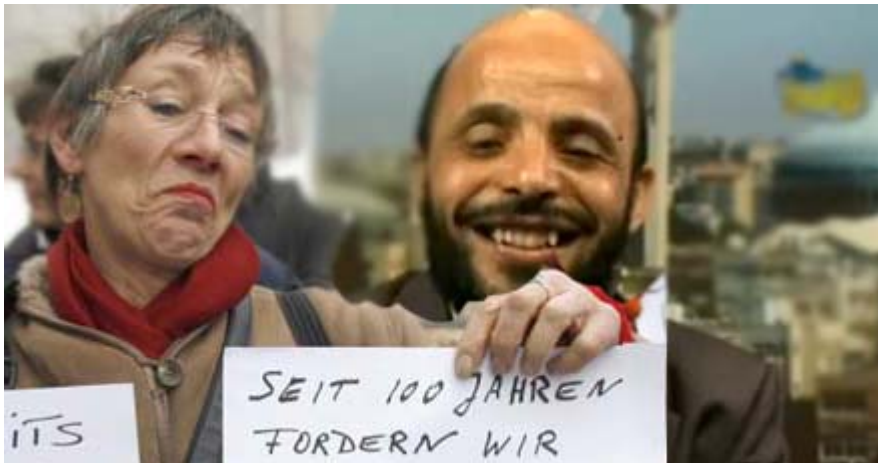 iTS
SEIT 100 JAHREN
FORDERN WIR